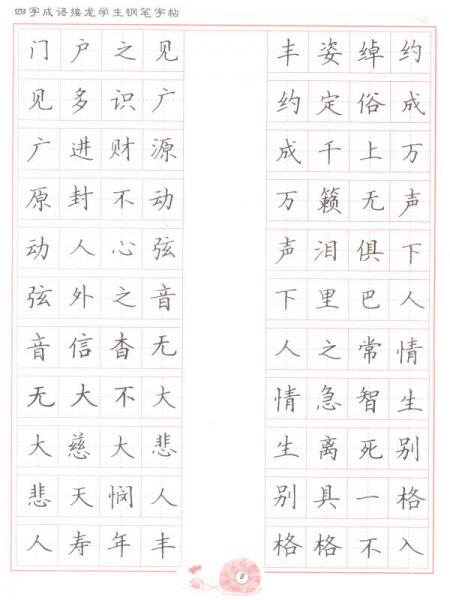 四字成语接龙学生钢笔字帖
门户之见
见多识广
广进财源
原封不动
动人心弦
弦外之音
音信杳无
无大不大
大慈大悲
悲天悯人
人寿年丰
丰姿绰约
约定俗成
成千上万
万籁无声
声泪俱下
下里巴人
人之常情
情急智生
生离死别
别具一格
格格不入
8